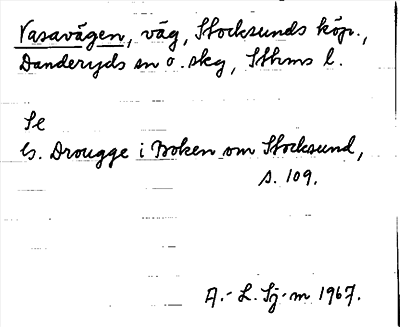 Vasavägen, väg, Stocksunds köp.,
Danderyds sn o. skg, Sthms l.
Se
G. Drougge i Boken om Stocksund,
s. 109.
A.-L. Sj-m 1967.